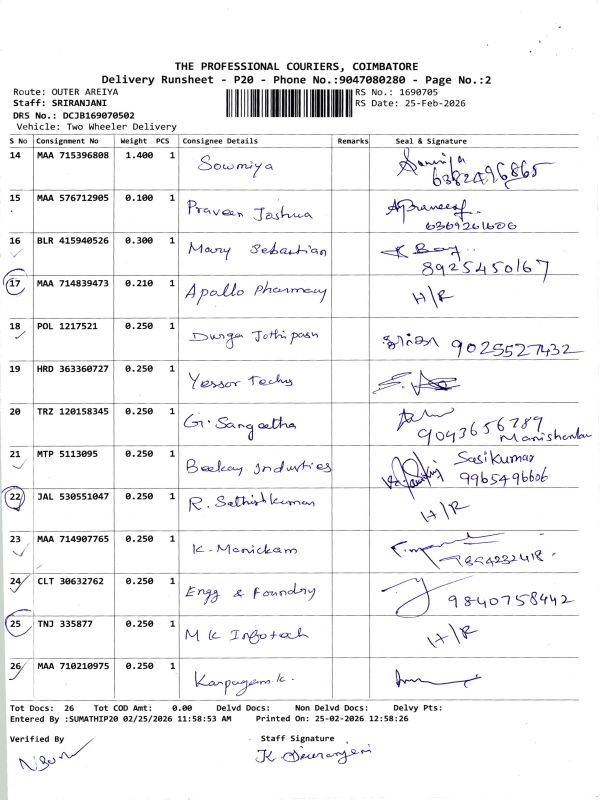 THE PROFESSIONAL COURIERS, COIMBATORE
Delivery Runsheet - P20 - Phone No.:9047080280 - Page No.:2
Route: OUTER AREIYA RS No.: 1690705
Staff: SRIRANJANI RS Date: 25-Feb-2026
DRS No.: DCJB169070502
Vehicle: Two Wheeler Delivery
S No Consignment No Weight PCS Consignee Details Remarks Seal & Signature
14 MAA 715396808 1.400 1 Sowmiya 6382496865
15 MAA 576712905 0.100 1 Praveen Joshua 6369261606
16 BLR 415940526 0.300 1 Mary Sebastian 8925450167
17 MAA 714839473 0.210 1 Apollo Pharmacy H/R
18 POL 1217521 0.250 1 Durga Jothipasu 9025527432
19 HRD 363360727 0.250 1 Yessor Techs
20 TRZ 120158345 0.250 1 G. Sangeetha 9043656789
21 MTP 5113095 0.250 1 Beekay Industies Sasikumar
9965496606
22 JAL 530551047 0.250 1 R. Sathishkumar H/R
23 MAA 714907765 0.250 1 K. Manickam
24 CLT 30632762 0.250 1 Engg & Foundry 9840758442
25 TNJ 335877 0.250 1 M K Infotech H/R
26 MAA 710210975 0.250 1 Karpagam.k.
Tot Docs: 26 Tot COD Amt: 0.00 Delvd Docs: Non Delvd Docs: Delvy Pts:
Entered By :SUMATHIP20 02/25/2026 11:58:53 AM Printed On: 25-02-2026 12:58:26
Verified By Staff Signature